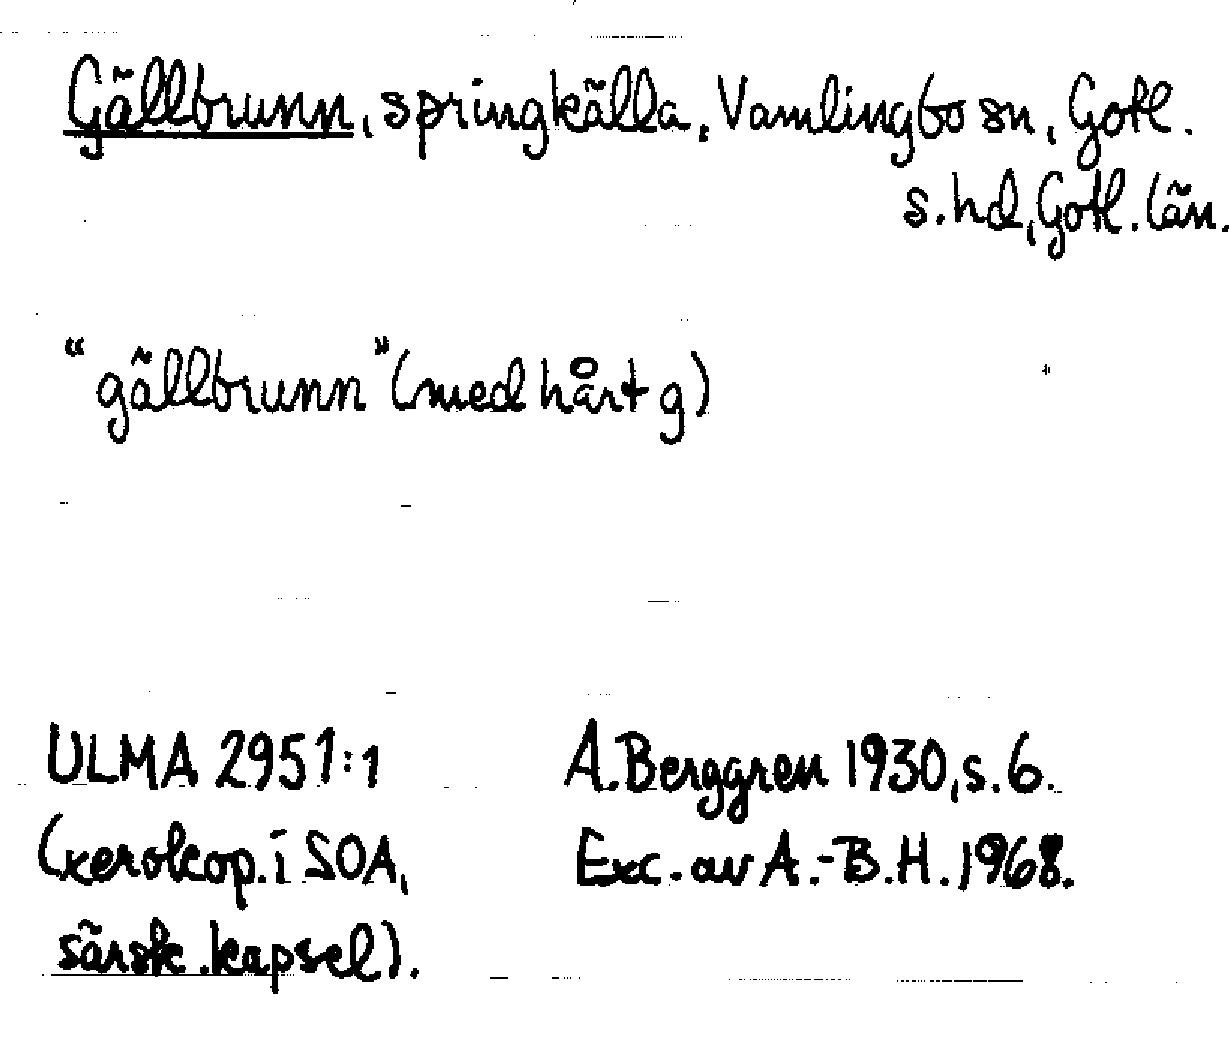 Gällbrunn, springkälla, Vamlingbo sn, Gotl.
s. hd, Gotl. län.
"gällbrunn" (med hårt g)
ULMA 2951:1
(xerokop. i SOA,
särsk. kapsel).
A. Berggren 1930, s. 6.
Exc. av A.-B. H. 1968.